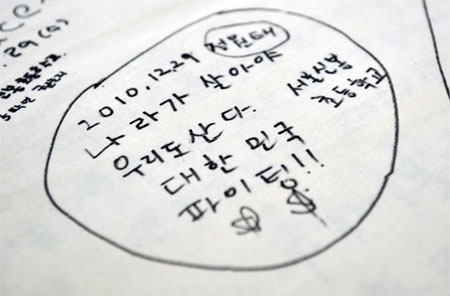 29(수)
2010.12.29
나라가 살아야
우리도 산다.
대한민국
파이팅!!!
서울신봉
초등학교